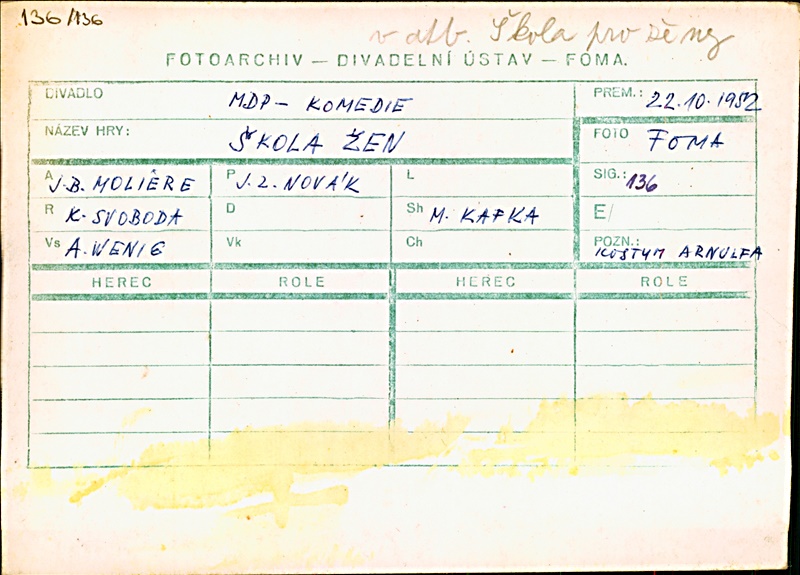 136/136
v alb. Škola pro ženy
FOTOARCHIV — DIVADELNÍ ÚSTAV — FOMA.
DIVADLO MDP – KOMEDIE PREM.: 22.10.1952
NÁZEV HRY: ŠKOLA ŽEN FOTO FOMA
A J.B. MOLIÈRE P J.Z. NOVÁK L SIG.: 136
R K. SVOBODA D Sh M. KAFKA E/
Vs A. WENIG Vk Ch POZN.: KOSTYM ARNULFA
HEREC ROLE HEREC ROLE